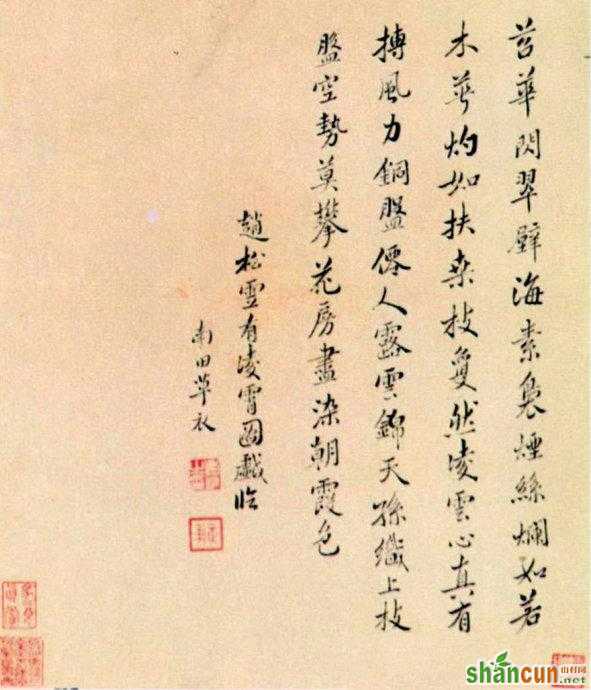 苕華閃翠壁海素裊煙絲爛如若
木華灼如扶桒枝夐然凌雲心真有
摶風力銅盤僊人露雲錦天孫織上枝
盤空勢莫攀花房盡染朝霞色
趙松雪有凌霄圖戲臨
南田草衣
shancun
山村网
.net